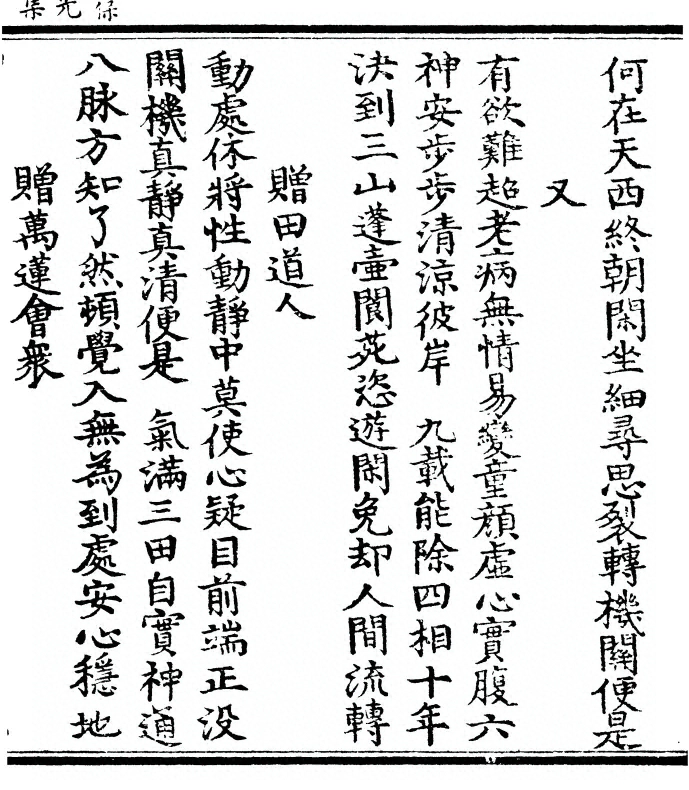 何在天西終朝閑坐細尋思裂轉機關便是
又
有欲難超老病無情易變童顔虛心實腹六
神安步步清涼彼岸　九載能除四相十年
決到三山蓬壺閬苑恣遊閑免却人間流轉
贈田道人
動處休將性動靜中莫使心疑目前端正没
關機真靜真清便是　氣滿三田自實神通
八脉方知了然頓覺入無為到處安心穩地
贈萬蓮會衆